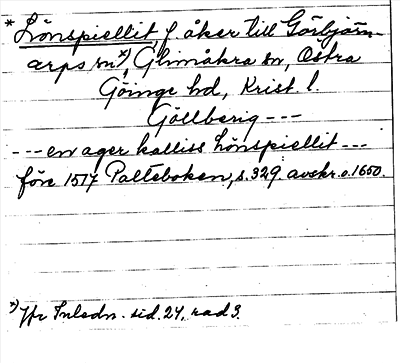 *Lönspiellit f. åker till Görbjörn-
arps sn*), Glimåkra sn, Östra
Göinge hd, Krist. l.
Göllberig ---
--- en ager kalliss Lönspiellit ---
före 1517 Palteboken, s. 329. avskr. o. 1600.
*) Jfr Inledn. sid. 24, rad 3.